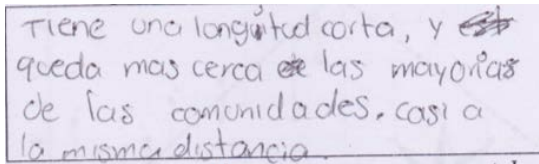 Tiene una longitud corta, y
queda mas cerca de las mayorias
de las comunidades. casi a
la misma distancia.